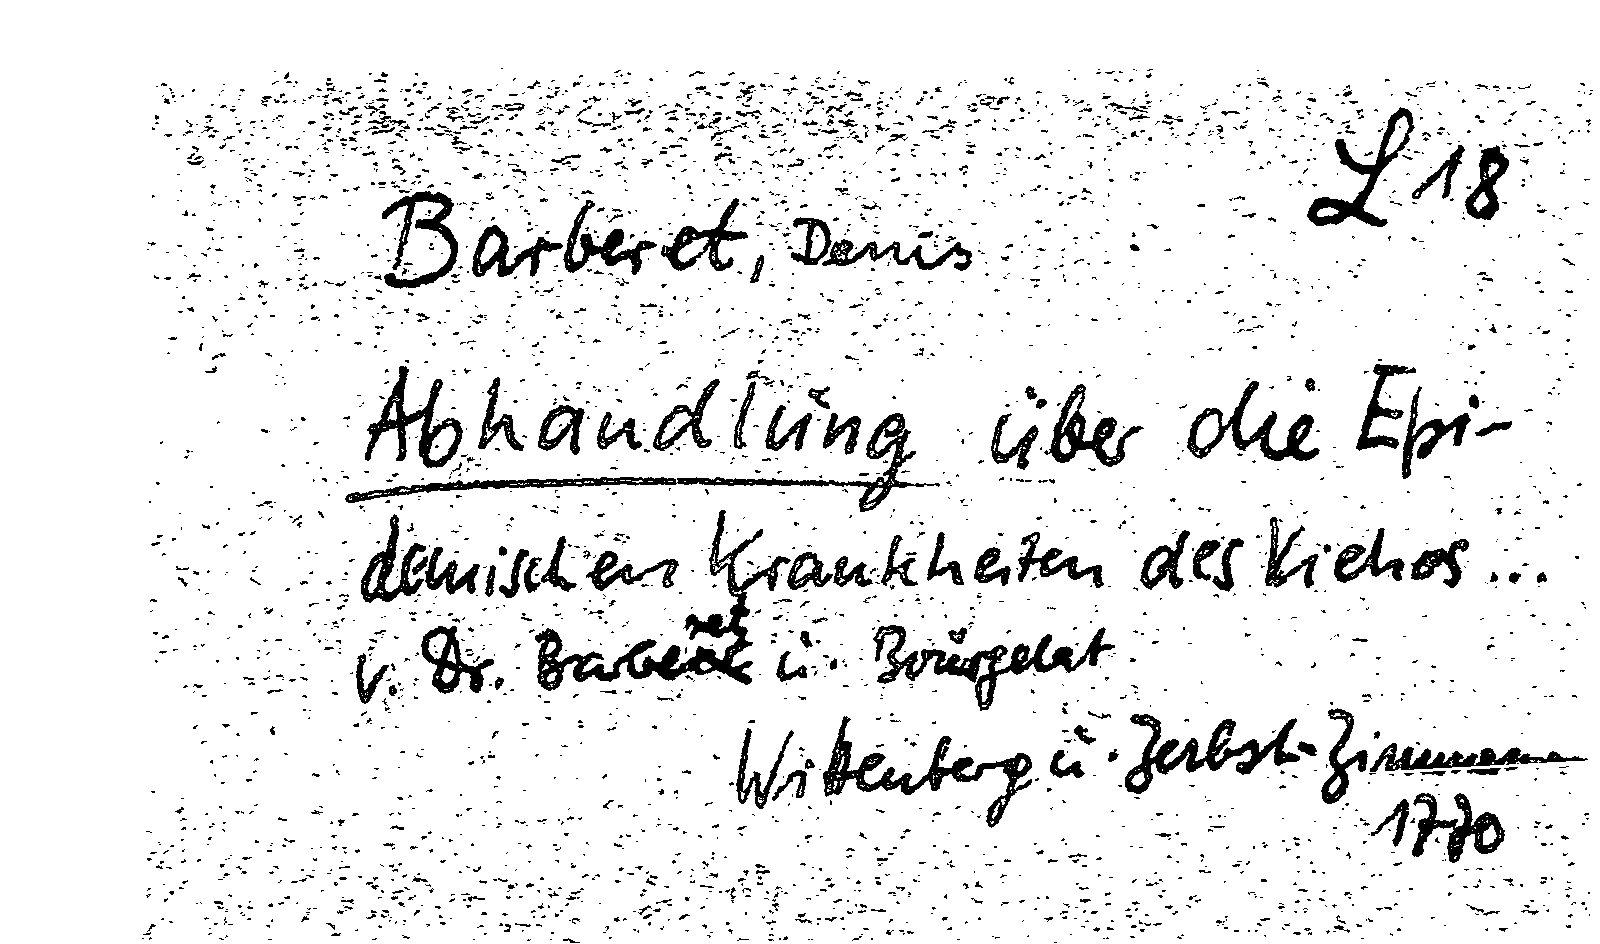 L 18
Barberet, Denis
Abhandlung über die Epi-
demischen Krankheiten des Viehes ...
v. Dr. Barberet u. Bourgelat
Wittenberg u. Zerbst: Zimmermann
1770